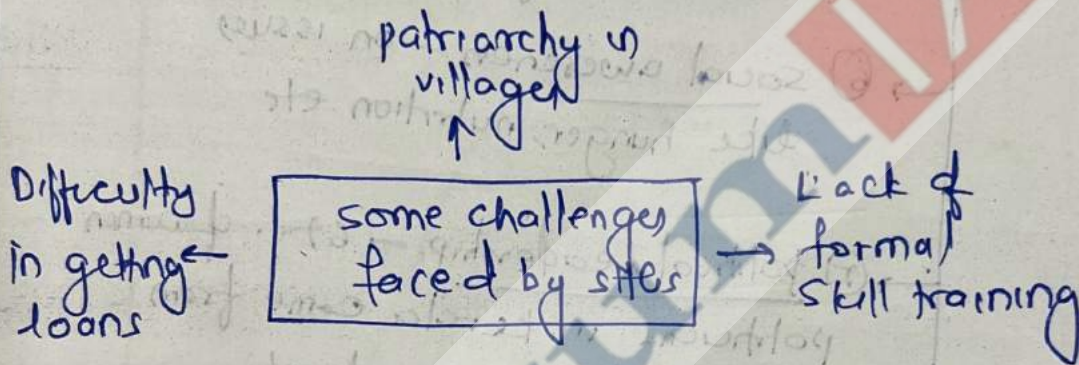 patriarchy in
villages
Difficulty
in getting
loans
some challenges
faced by SHGs
Lack of
formal
Skill training